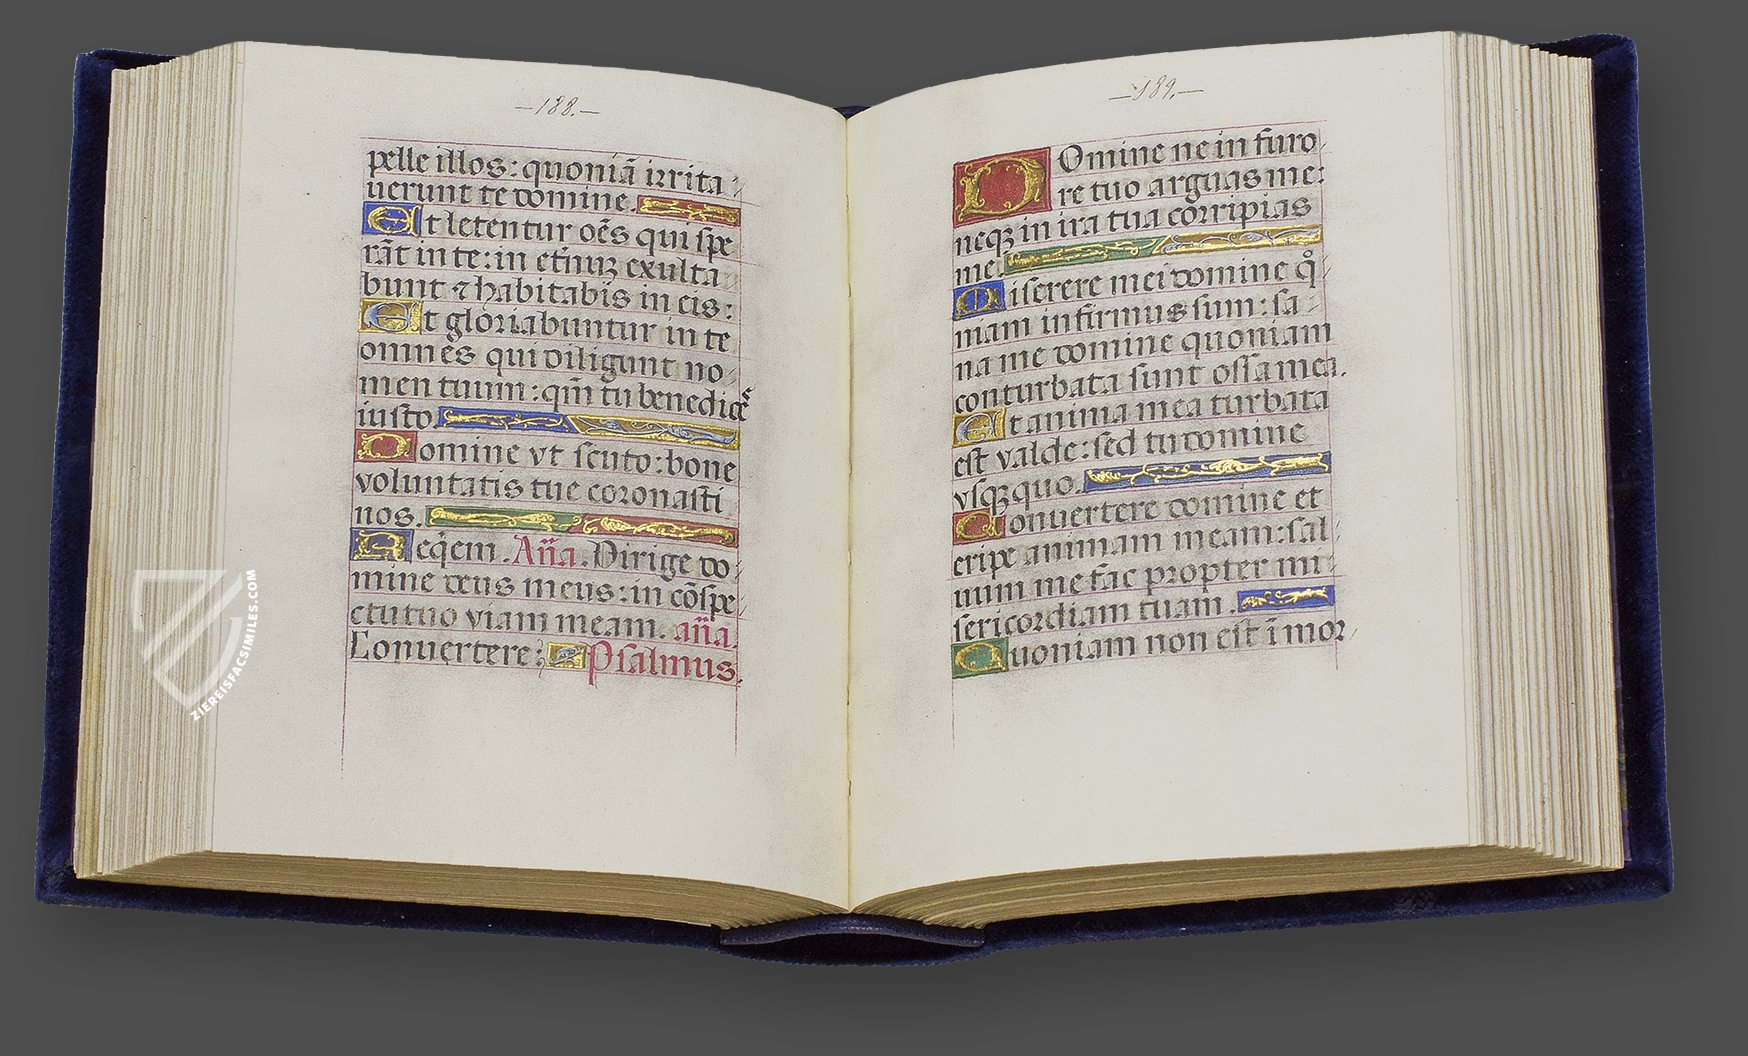 —188.—
pelle illos: quoniā irrita
uerunt te domine.
Et letentur oēs qui spe
rāt in te: in eťnuꝫ exulta
bunt ⁊ habitabīs in eis:
Et gloriabuntur in te
omnes qui diligunt no
men tuum: qm̄ tu benedices
iusto.
Domine vt scuto: bone
voluntatis tue coronasti
nos.
Reqem. Aña. Dirige do
mine deus meus: in cōspe
ctu tuo viam meam. aña.
Conuertere: Psalmus.
—189.—
Domine ne in furo
re tuo arguas me:
neqꝫ in ira tua corripias
me.
Miserere mei domine qͦ
niam infirmus sum: sa
na me domine quoniam
conturbata sunt ossa mea.
Et anima mea turbata
est valde: sed tu domine
vsqꝫquo.
Conuertere domine et
eripe animam meam: sal
uum me fac propter mi
sericordiam tuam.
Quoniam non est ī mor
ZIEREISFACSIMILES.COM